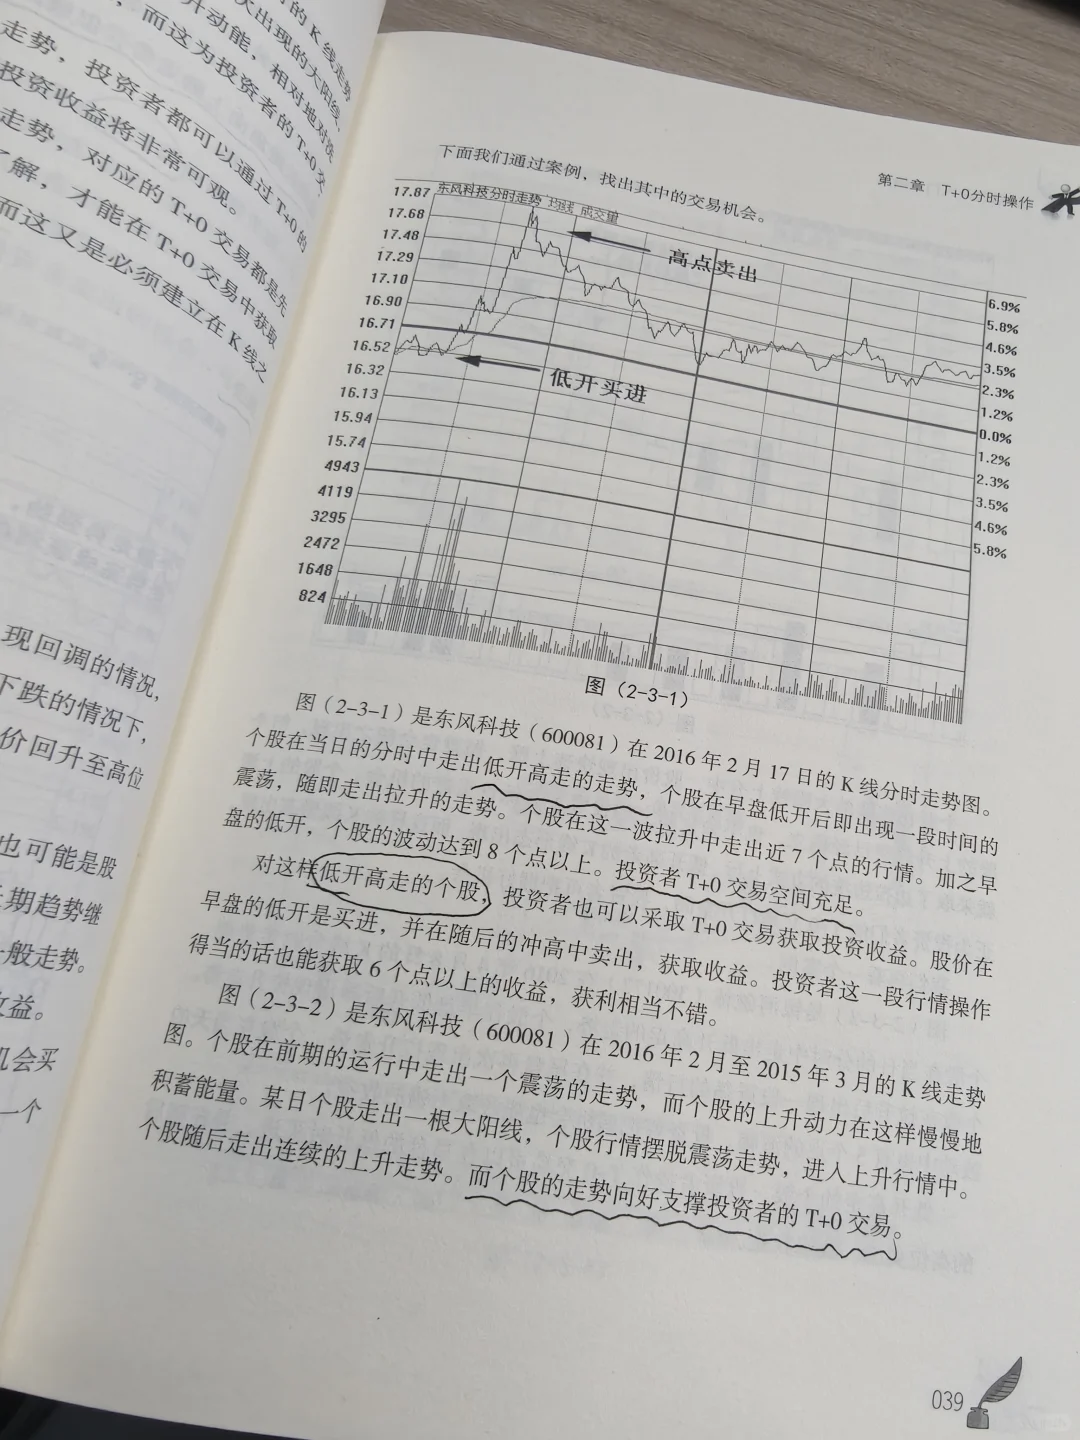 的K线走势
大出现的大阳线,
升动能,相对地对该
,而这为投资者的T+0交
走势,投资者都可以通过T+0的
投资收益将非常可观。
走势,对应的T+0交易都是先
了解,才能在T+0交易中获取
而这又是必须建立在K线之
现回调的情况,
下跌的情况下,
价回升至高位
也可能是股
期趋势继
一般走势。
收益。
机会买
一个
第二章 T+0分时操作
下面我们通过案例,找出其中的交易机会。
东风科技分时走势 均线 成交量
17.87
17.68
17.48
17.29
17.10
16.90
16.71
16.52
16.32
16.13
15.94
15.74
4943
4119
3295
2472
1648
824
高点卖出
低开买进
6.9%
5.8%
4.6%
3.5%
2.3%
1.2%
0.0%
1.2%
2.3%
3.5%
4.6%
5.8%
图(2-3-1)
图(2-3-1)是东风科技(600081)在2016年2月17日的K线分时走势图。
个股在当日的分时中走出低开高走的走势,个股在早盘低开后即出现一段时间的
震荡,随即走出拉升的走势。个股在这一波拉升中走出近7个点的行情。加之早
盘的低开,个股的波动达到8个点以上。投资者T+0交易空间充足。
对这样低开高走的个股,投资者也可以采取T+0交易获取投资收益。股价在
早盘的低开是买进,并在随后的冲高中卖出,获取收益。投资者这一段行情操作
得当的话也能获取6个点以上的收益,获利相当不错。
图(2-3-2)是东风科技(600081)在2016年2月至2015年3月的K线走势
图。个股在前期的运行中走出一个震荡的走势,而个股的上升动力在这样慢慢地
积蓄能量。某日个股走出一根大阳线,个股行情摆脱震荡走势,进入上升行情中。
个股随后走出连续的上升走势。而个股的走势向好支撑投资者的T+0交易。
039